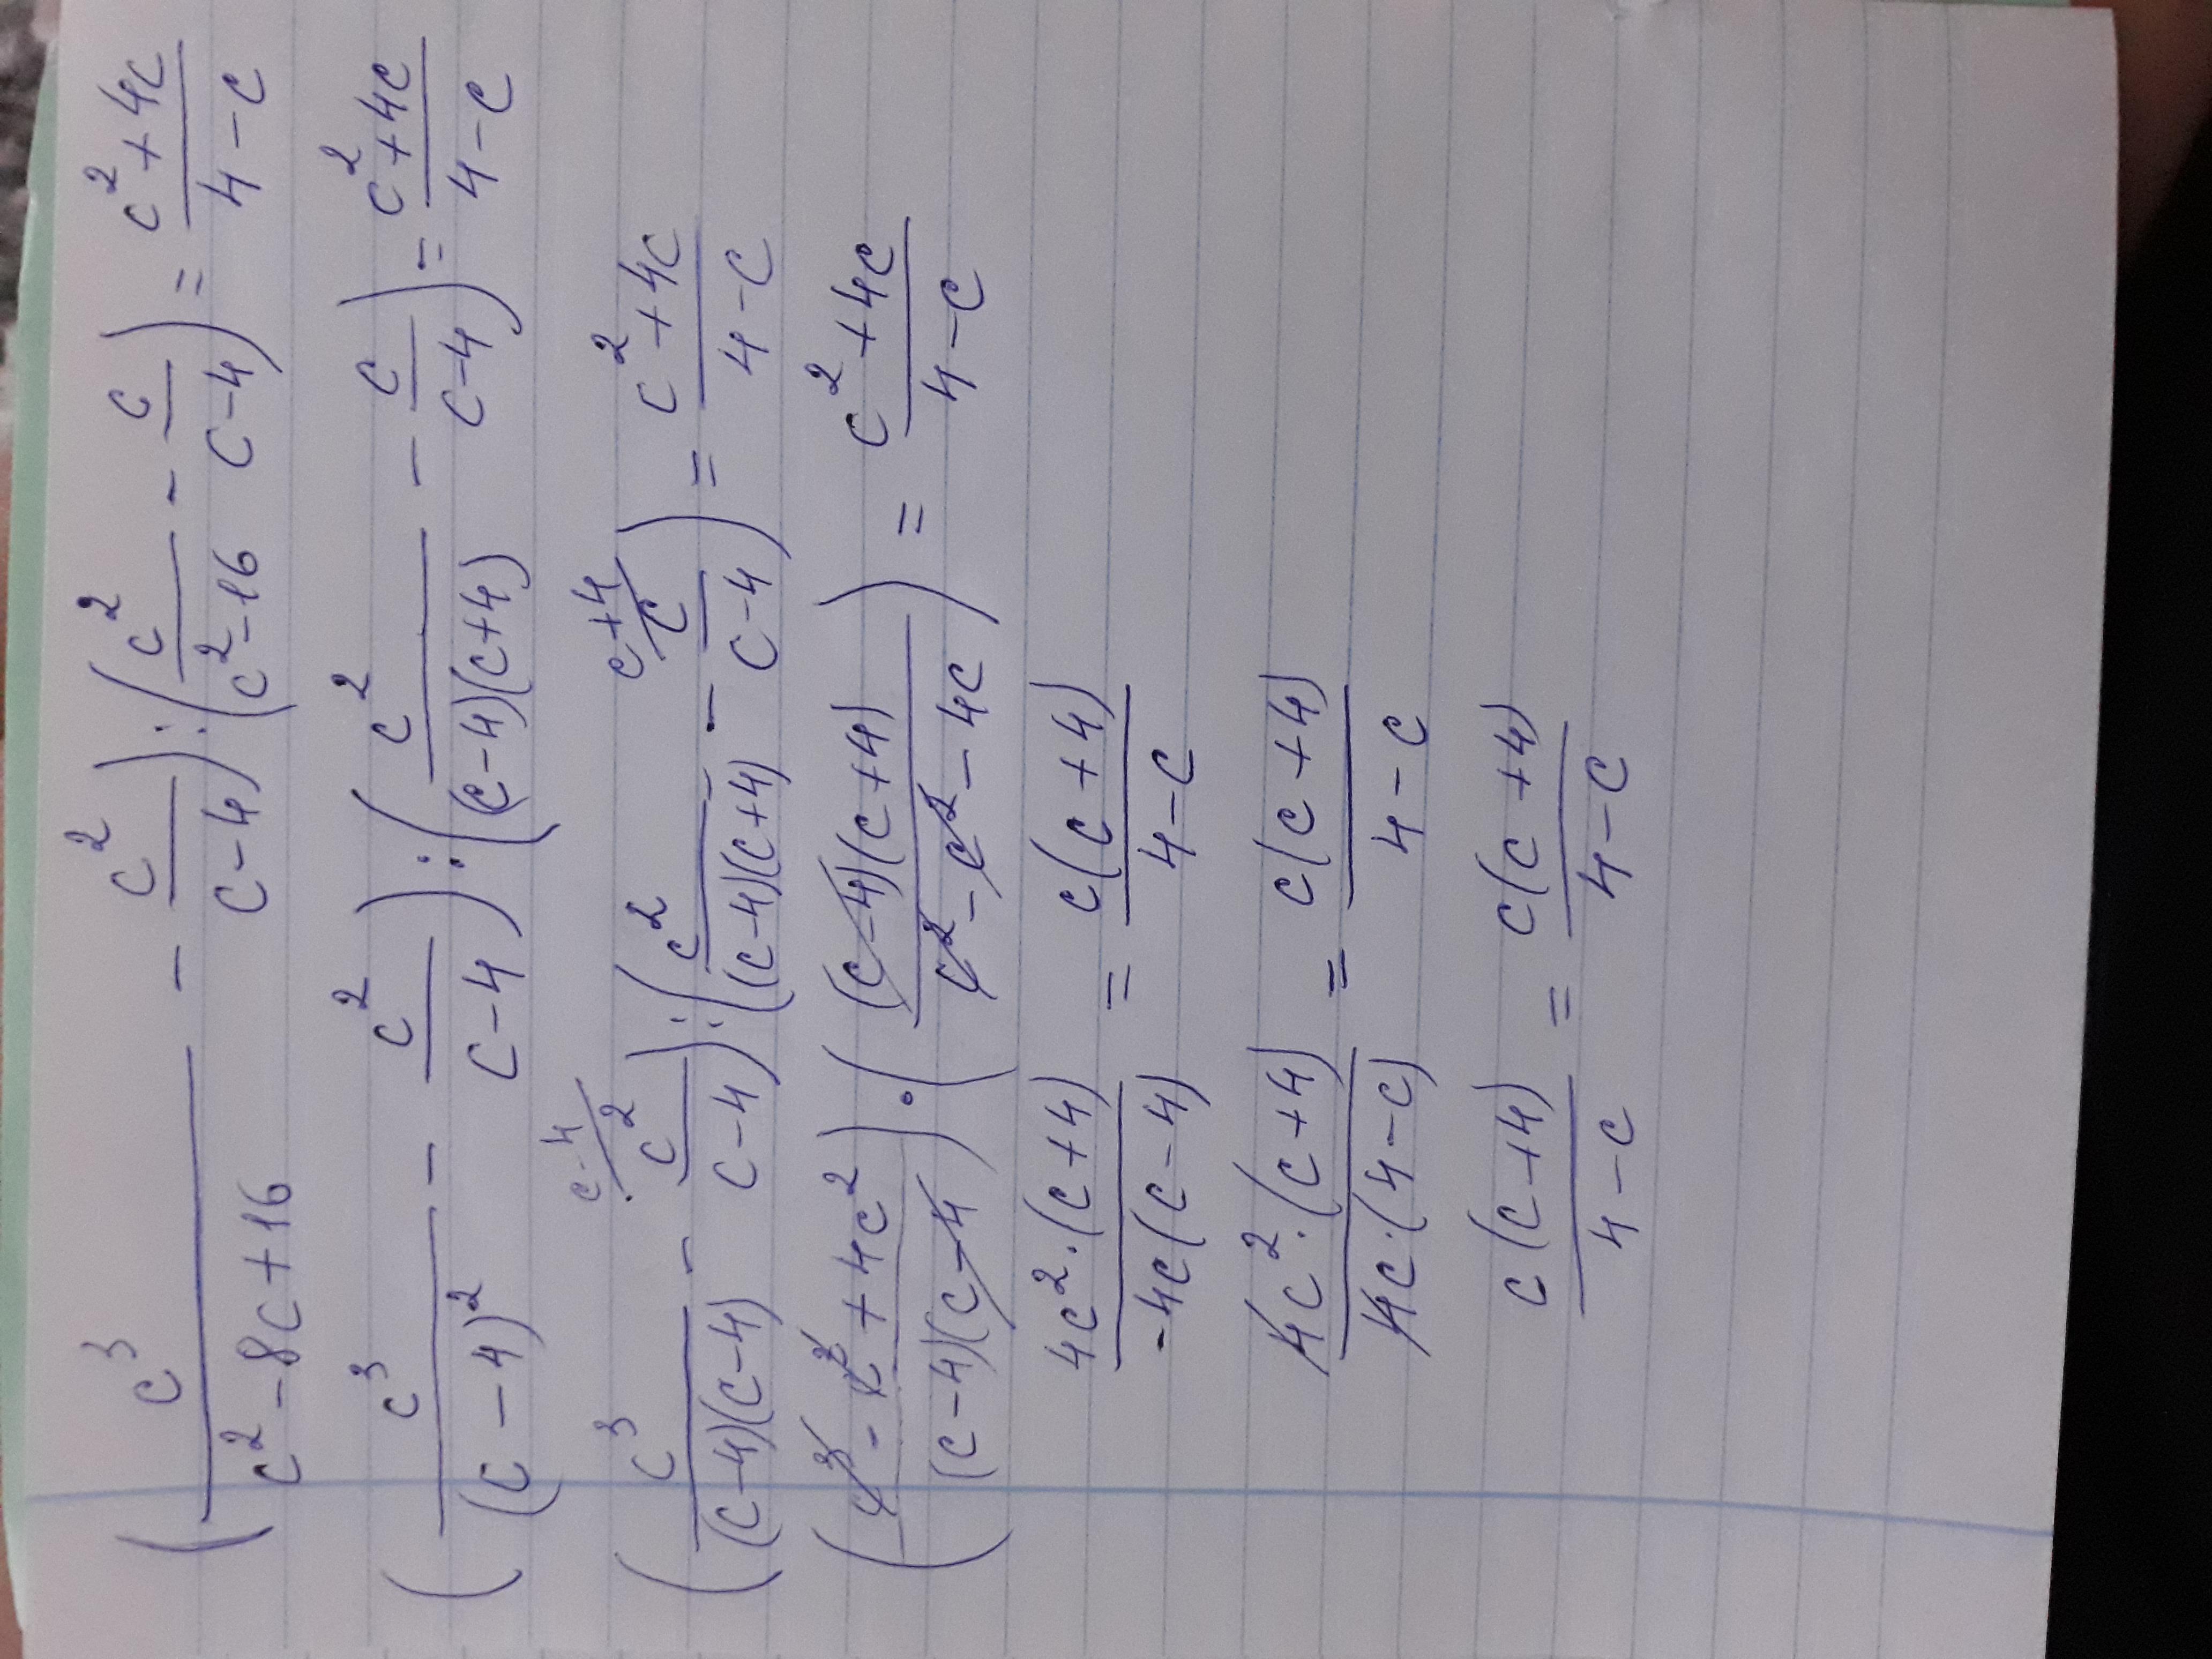 (c³/(c²-8c+16) - c²/(c-4)) : (c²/(c²-16) - c/(c-4)) = (c²+4c)/(4-c)
(c³/(c-4)² - c²/(c-4)) : (c²/((c-4)(c+4)) - c/(c-4)) = (c²+4c)/(4-c)
(c³/((c-4)(c-4)) - c²/(c-4)) : (c²/((c-4)(c+4)) - c/(c-4)) = (c²+4c)/(4-c)
c-4 c+4
((c³-c³+4c²)/((c-4)(c-4))) · ((c-4)(c+4)/(c²-c²-4c)) = (c²+4c)/(4-c)
4c²·(c+4)/(-4c(c-4)) = c(c+4)/(4-c)
4c²·(c+4)/(4c·(4-c)) = c(c+4)/(4-c)
c(c+4)/(4-c) = c(c+4)/(4-c)